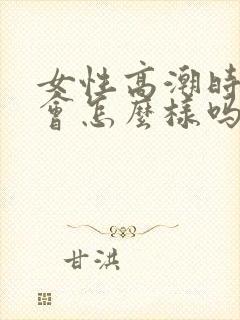 女性高潮時
會怎麼樣嗎
甘洪